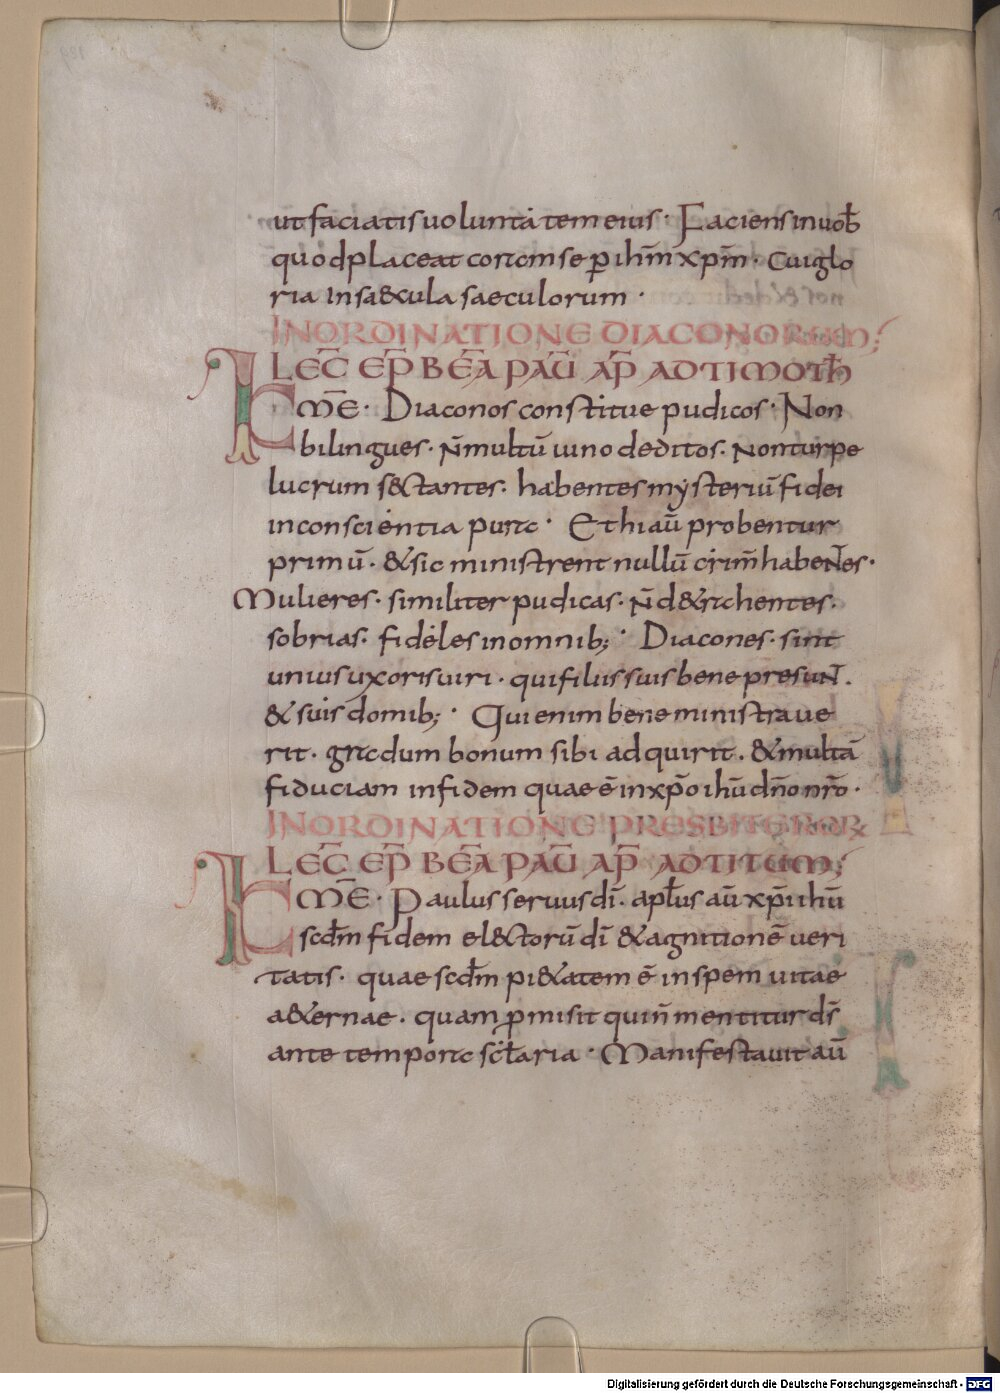 ut faciatis uoluntatem eius · Faciens in uob̄
quod placeat coram se ꝑ ihm̄ xpm̄ · Cui glo
ria In sa&cula saeculorum ·
IN ORDINATIONE DIACONORUM;
LEC̄ EP̄ BĒA PAŪ AP̄ AD TIMOTH̄
FR̄
M̄E · Diaconos constitue pudicos · Non
bilingues · n̄ multū uino deditos · Non turpe
lucrum s&ctantes · habentes mysteriū fidei
in conscientia pura · Et hi aū probentur
primū · &sic ministrent nullū crim̄ habentes ·
Mulieres · similiter pudicas · n̄ d&rahentes ·
sobrias · fideles in omnib; · Diacones · sint
unius uxoris uiri · qui filiis suis bene presunt ·
& suis domib; · Qui enim bene ministraue
rit · gradum bonum sibi adquirit · & multā
fiduciam in fidem quae ē in xp̄o ihū dn̄o nr̄o ·
IN ORDINATIONE PRESBITERORꝜ
LEC̄ EP̄ BĒA PAŪ AP̄ AD TITUM;
M̄E · Paulus seruus dī · apl̄us aū xp̄i ihū
scd̄m fidem el&ctorū dī & agnitionē ueri
tatis · quae scd̄m pi&atem ē in spem uitae
a&ernae · quam ꝓmisit qui n̄ mentitur ds̄
ante tempora sc̄laria · Manifestauit aū
Digitalisierung gefördert durch die Deutsche Forschungsgemeinschaft - DFG